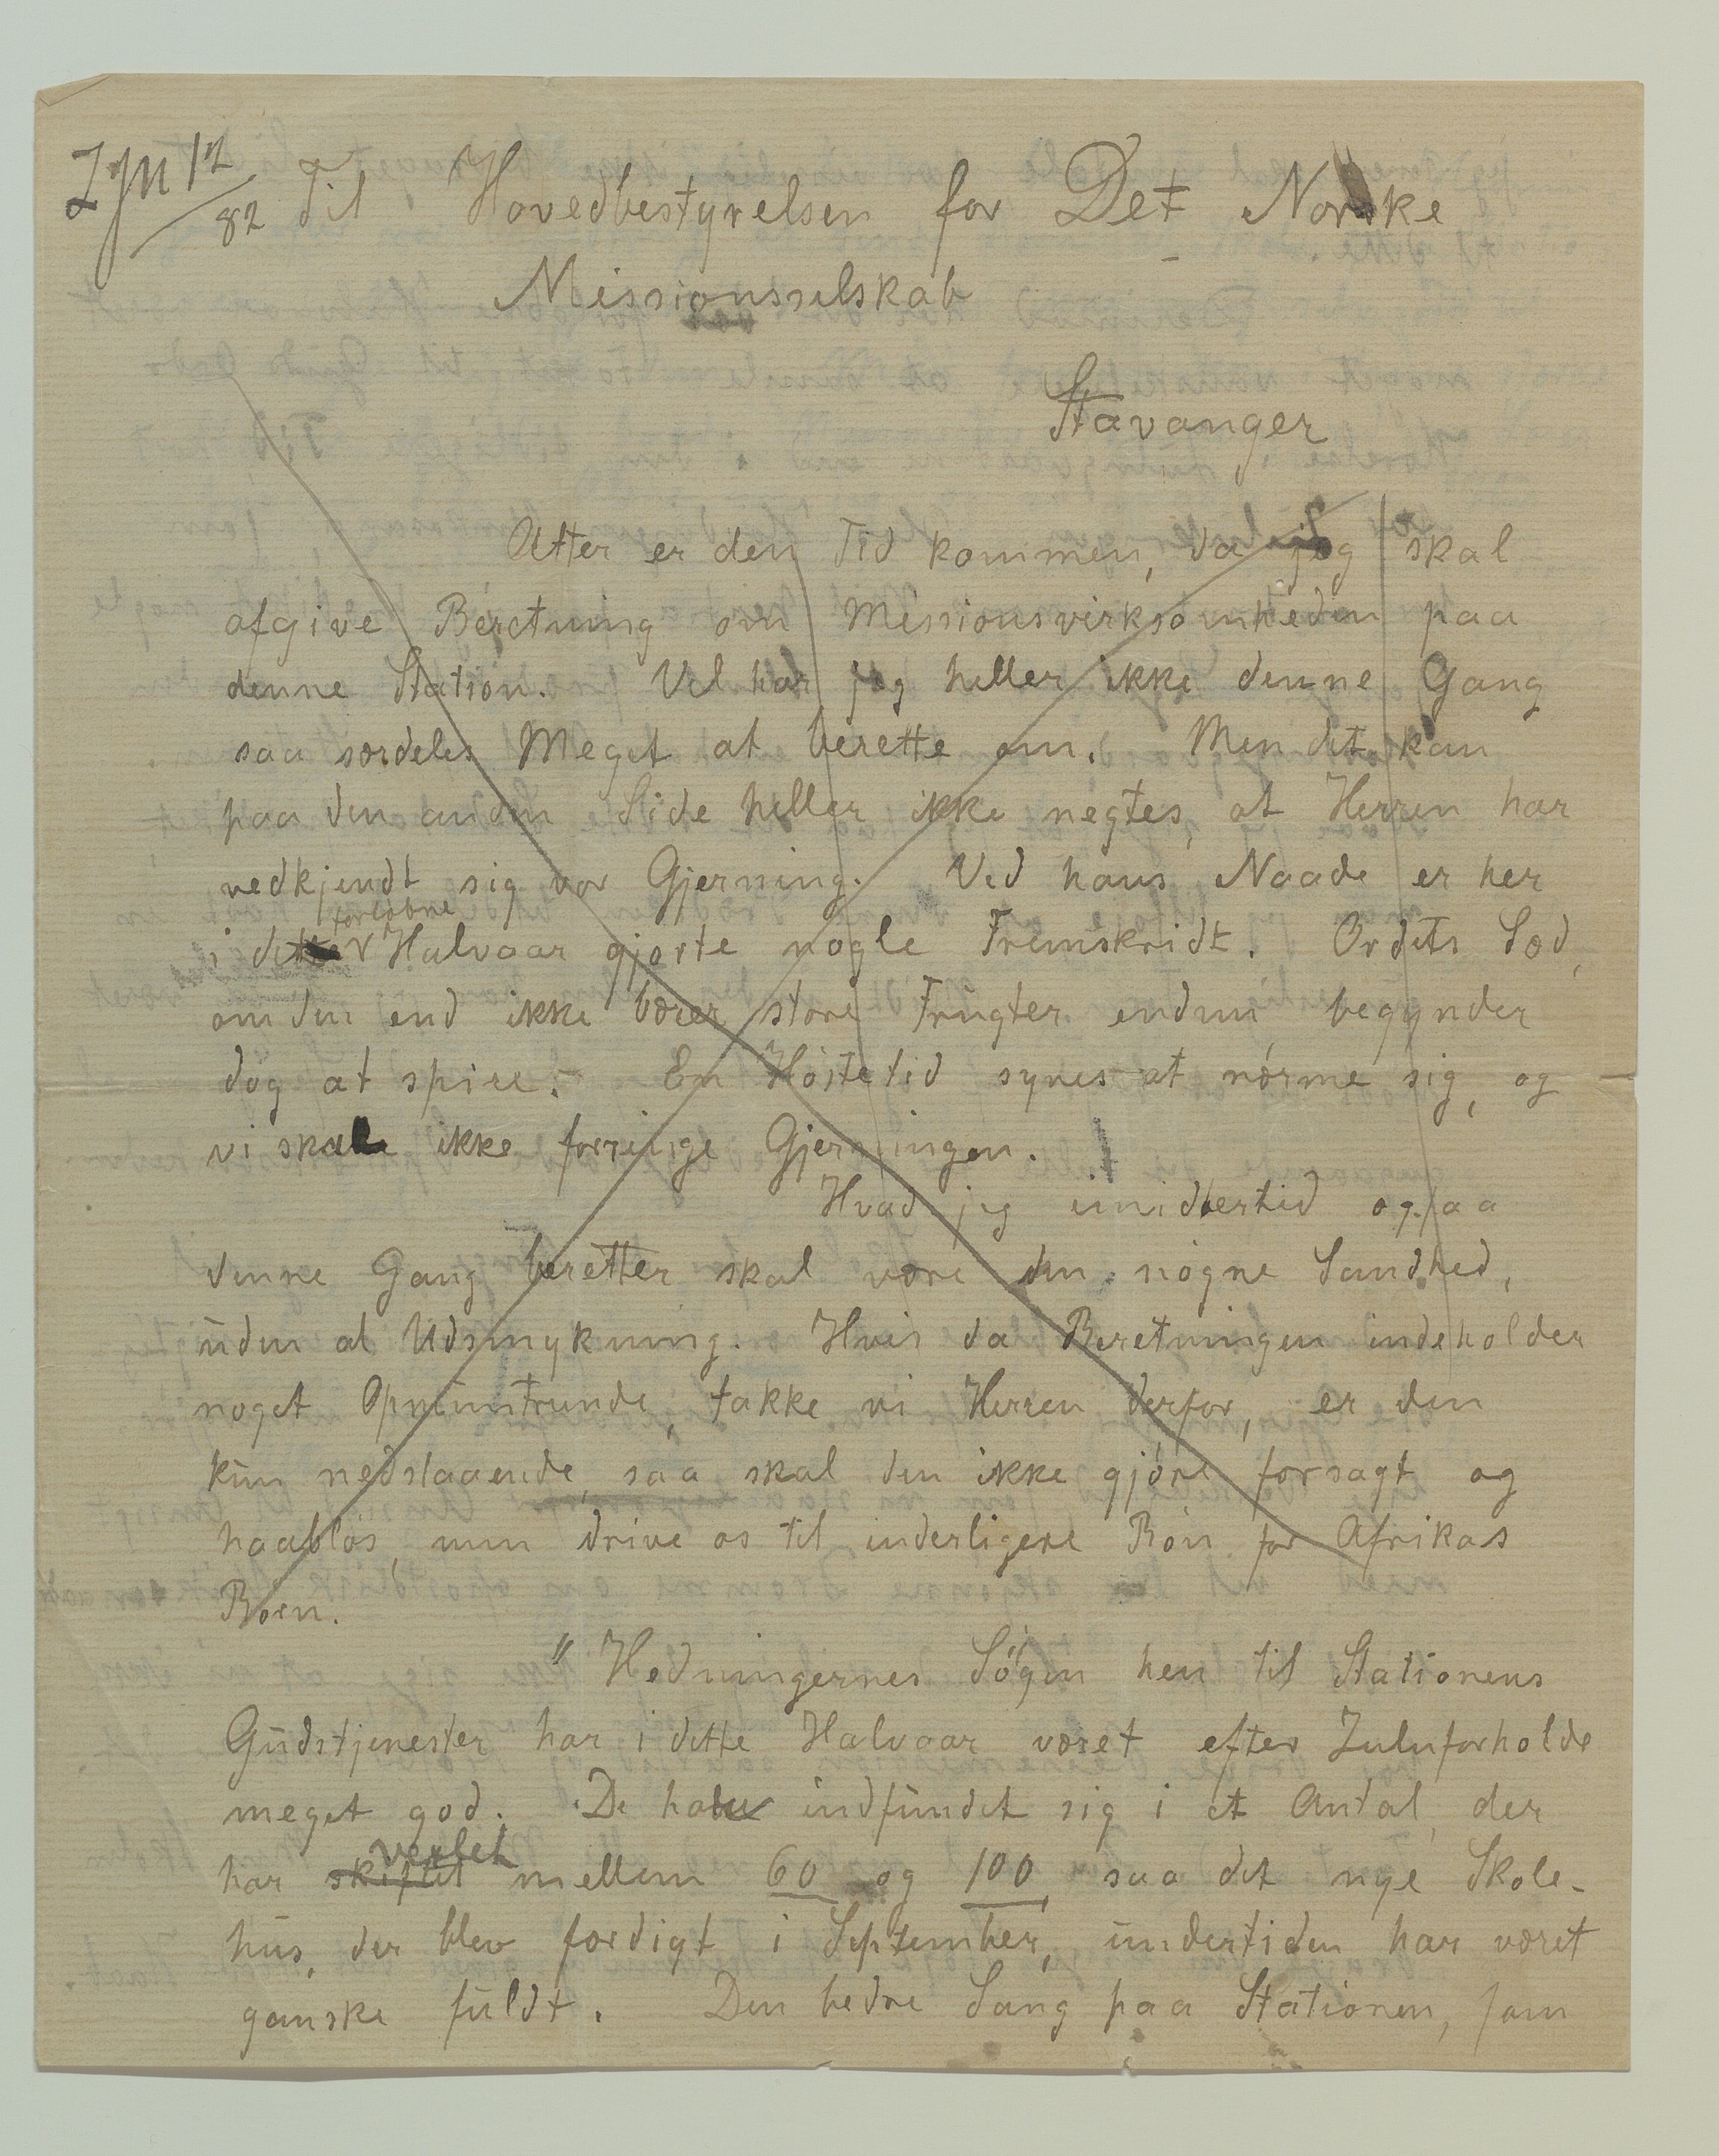 Til Hovedbestyrelsen for Det Norske
82
Missionsselskab
Stavanger
Atter er den Tid kommen, da jeg skal
afgive Beretning om Missionsvirksomheden paa
denne Station. Vel har jeg heller ikke denne Gang
saa særdeles Meget at berette om. Men det kan
paa den anden Side heller ikke negtes, at Herren har
vedkjendt sig vor Gjerning. Ved hans Naade er her
forløbne
i dette Halvaar gjorte nogle Fremskridt. Ordets Sæd,
om den end ikke bærer store Frugter endnu begynder
dog at spire. En Høstetid synes at nærme sig, og
vi skulle ikke forringe Gjerningen.
Hvad jeg imidlertid ogsaa
denne Gang beretter skal være den nøgne Sandhed,
uden al Udsmykning. Hvis da Beretningen indeholder
noget Opmuntrende, takke vi Herren derfor, er den
kun nedslaaende, saa skal den ikke gjøre forsagt og
haabløs, men drive os til inderligere Bøn for Afrikas
Børn.
" Hedningernes Søgen hen til Stationens
Gudstjenester har i dette Halvaar været efter Zuluforholde
meget god. De have indfundet sig i et Antal, der
vexlet
har skiftet mellem 60 og 100, saa det nye Skole-
hus, der blev færdigt i September, undertiden har været
ganske fuldt. Den bedre Sang paa Stationen, som